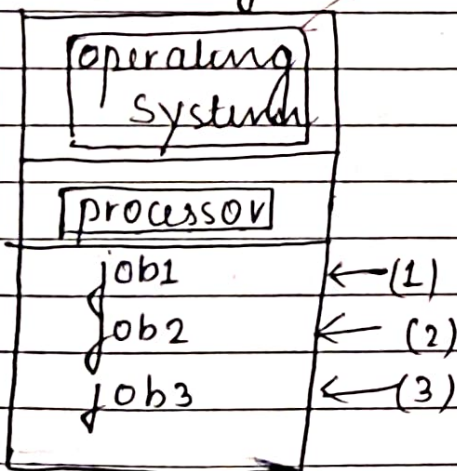 operating
system
processor
job1 ←(1)
job2 ← (2)
job3 ←(3)